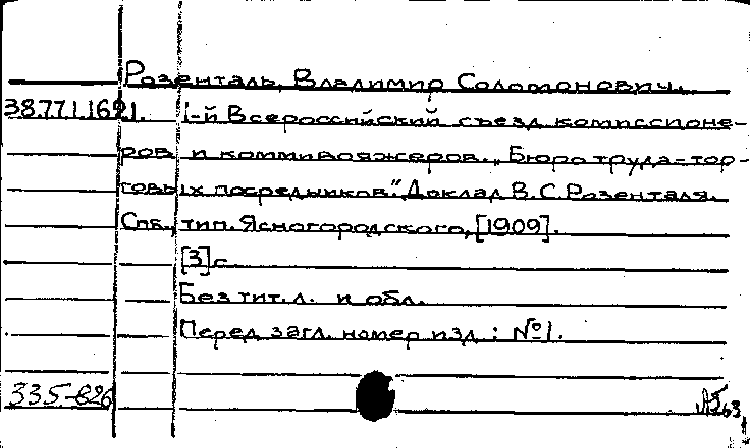 Розенталь, Владимир Соломонович.
38.77.1.162 1. 1-й Всероссийский съезд комиссионе-
ров и коммивояжеров. „Бюро труда-тор-
говых посредников." Доклад В.С. Розенталя.
Спб., тип. Ясногородского, [1909].
[3] с.
Без тит. л. и обл.
Перед загл. номер изд.: №1.
335-826